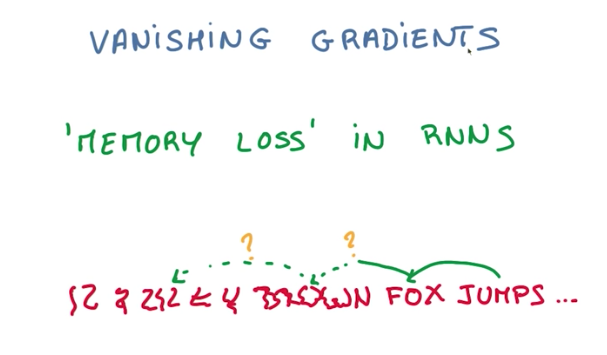 VANISHING GRADIENTS
'MEMORY LOSS' IN RNNS
? ?
FOX JUMPS ...